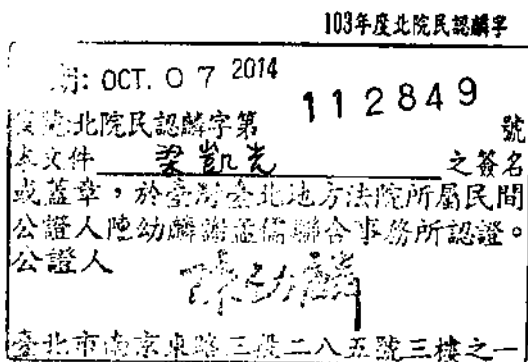 103年度北院民認麟字
期: OCT. 07 2014
北院民認麟字第 112849 號
本文件 梁凱光 之簽名
或蓋章，於臺灣臺北地方法院所屬民間
公證人陳幼麟謝孟儒聯合事務所認證。
公證人
陳幼麟
臺北市南京東路三段二八五號三樓之一